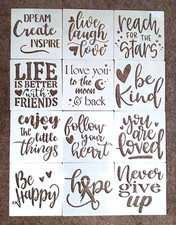 DREAM
Create
INSPIRE
live
laugh
love
reach
FOR THE
Stars
LIFE
IS BETTER
with
FRIENDS
I love you
to the
moon
& back
be
Kind
enjoy
the little
things
follow
your
heart
you
are
loved
Be
Happy
hope
Never
give
up